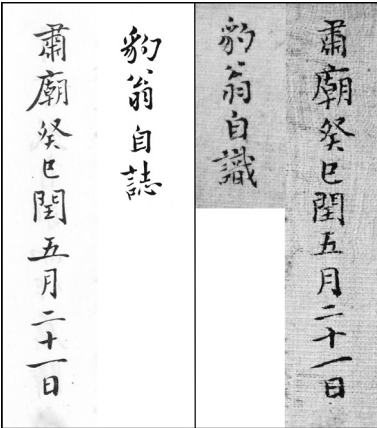 肅廟癸巳閏五月二十一日
豹翁自誌
豹翁自識
肅廟癸巳閏五月二十一日